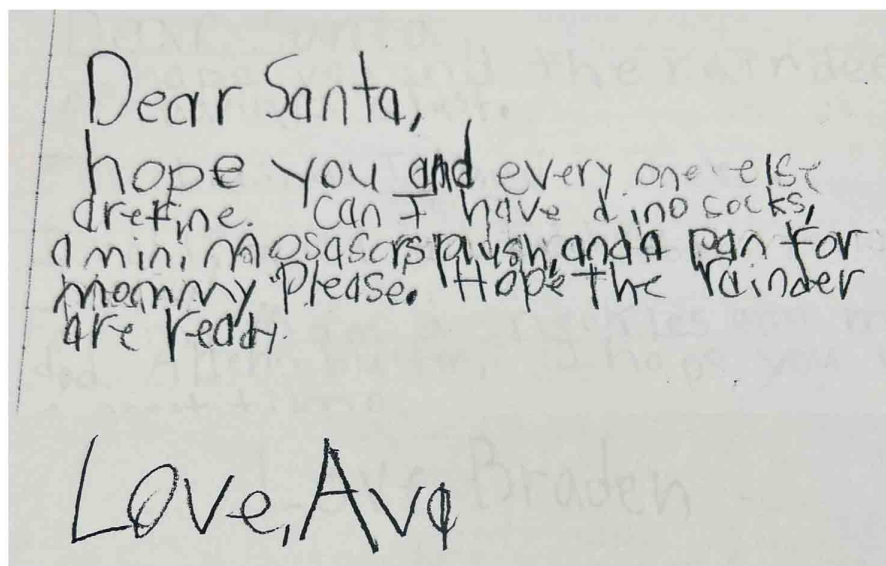 Dear Santa,
hope you and every one else
are fine. Can I have dino socks,
a mini mosasors plush, and a pan for
mommy Please. Hope the rainder
are ready.
Love, Ava
Love Braden